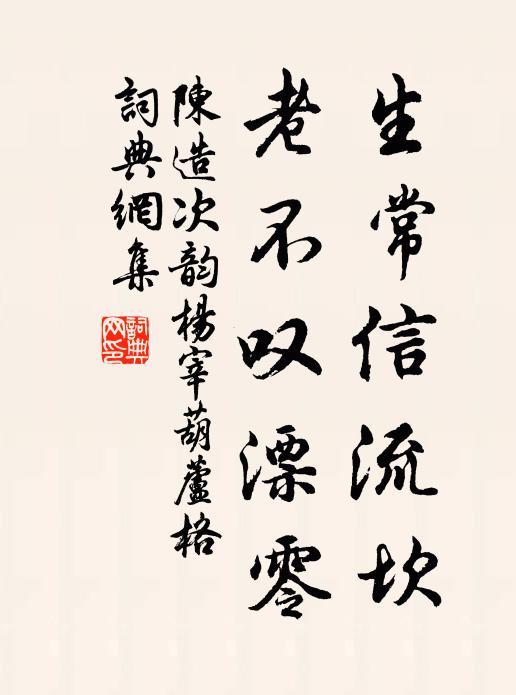 生常信流坎
老不叹漂零
陳造次韵楊宰葫蘆格
詞典網集
詞典網印